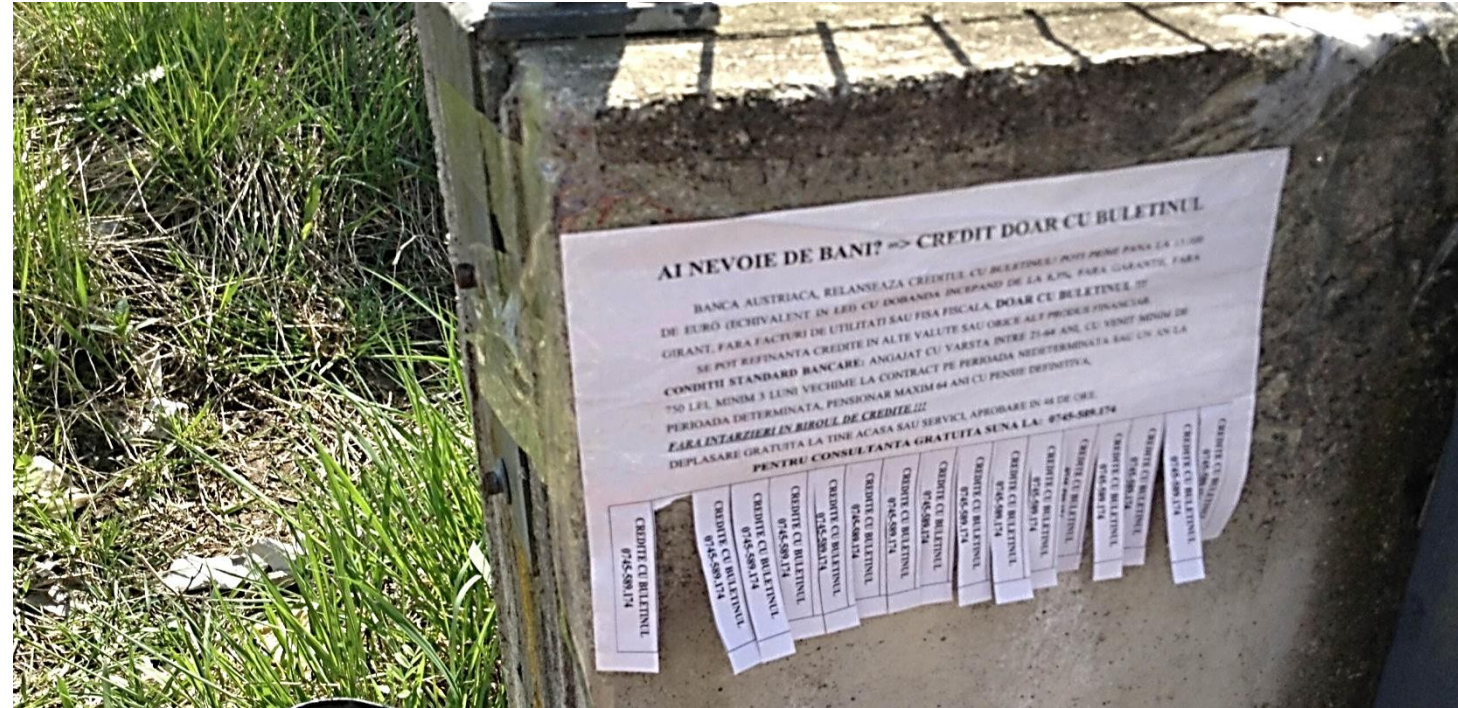 AI NEVOIE DE BANI? => CREDIT DOAR CU BULETINUL
BANCA AUSTRIACA, RELANSEAZA CREDITUL CU BULETINUL! POTI PRIMI PANA LA 15.000
DE EURO (ECHIVALENT IN LEI) CU DOBANDA INCEPAND DE LA 8,5%, FARA GARANTII, FARA
GIRANT, FARA FACTURI DE UTILITATI SAU FISA FISCALA, DOAR CU BULETINUL !!!
SE POT REFINANTA CREDITE IN ALTE VALUTE SAU ORICE ALT PRODUS FINANCIAR
CONDITII STANDARD BANCARE: ANGAJAT CU VARSTA INTRE 21-64 ANI, CU VENIT MINIM DE
750 LEI, MINIM 3 LUNI VECHIME LA CONTRACT PE PERIOADA NEDETERMINATA SAU UN AN LA
PERIOADA DETERMINATA, PENSIONAR MAXIM 64 ANI CU PENSIE DEFINITIVA,
FARA INTARZIERI IN BIROUL DE CREDITE !!!
DEPLASARE GRATUITA LA TINE ACASA SAU SERVICI, APROBARE IN 48 DE ORE.
PENTRU CONSULTANTA GRATUITA SUNA LA: 0745-589.174
CREDITE CU BULETINUL
0745-589.174
CREDITE CU BULETINUL
0745-589.174
CREDITE CU BULETINUL
0745-589.174
CREDITE CU BULETINUL
0745-589.174
CREDITE CU BULETINUL
0745-589.174
CREDITE CU BULETINUL
0745-589.174
CREDITE CU BULETINUL
0745-589.174
CREDITE CU BULETINUL
0745-589.174
CREDITE CU BULETINUL
0745-589.174
CREDITE CU BULETINUL
0745-589.174
CREDITE CU BULETINUL
0745-589.174
CREDITE CU BULETINUL
CREDITE CU BULETINUL
0745-589.174
CREDITE CU BULETINUL
0745-589.174
CREDITE CU BULETINUL
0745-589.174
CREDITE CU BULETINUL